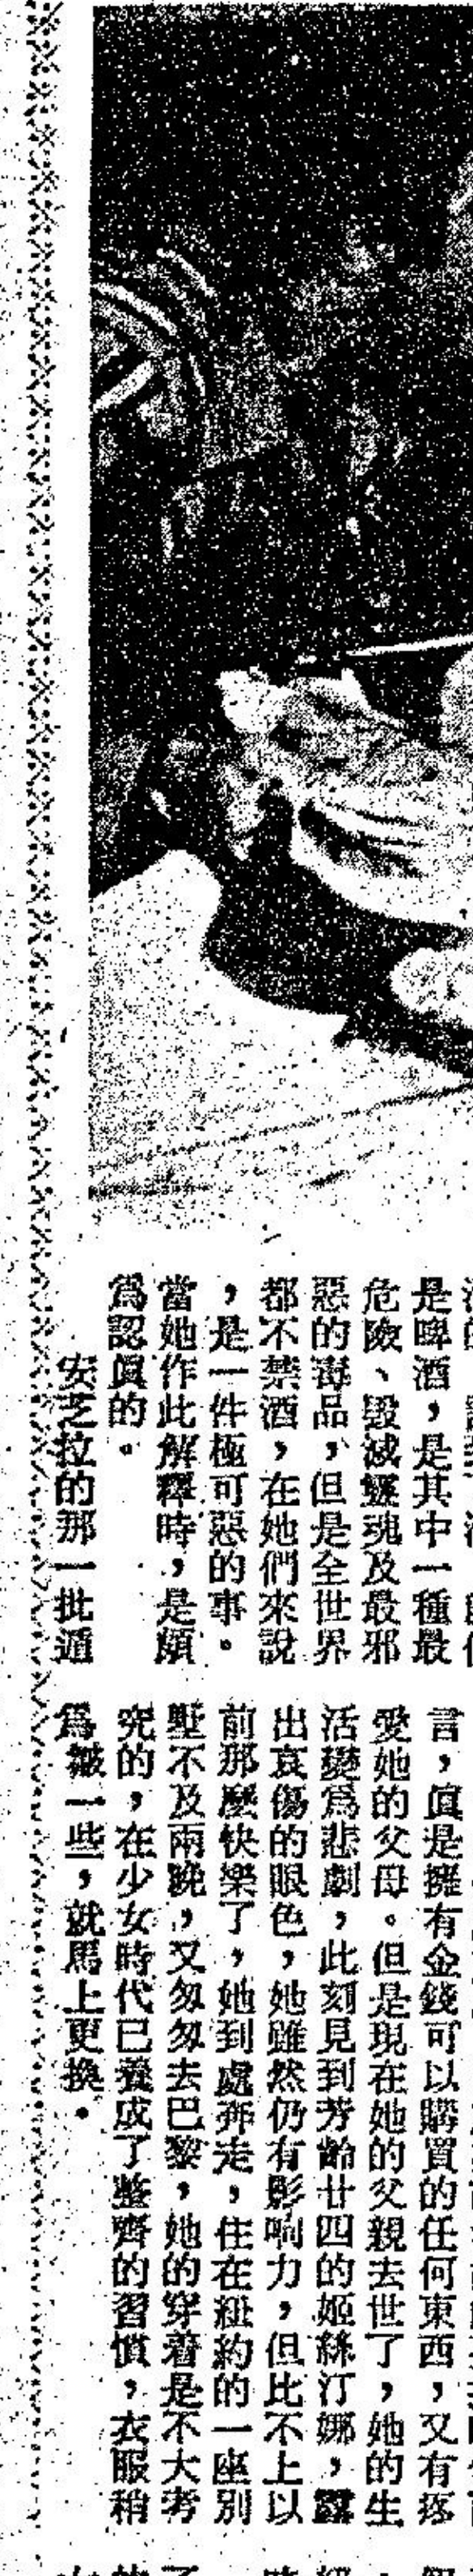 是啤酒，是其中一種最
危險、毀滅靈魂及最邪
惡的毒品，但是全世界
都不禁酒，在她們來說
，是一件極可惡的事。
當她作此解釋時，是頗
為認真的。
安芝拉的那一批遁
言，眞是擁有金錢可以購買的任何東西，又有疼
愛她的父母。但是現在她的父親去世了，她的生
活變爲悲劇，此刻見到芳齡廿四的姬絲汀娜，露
出哀傷的眼色，她雖然仍有影响力，但比不上以
前那麼快樂了，她到處奔走，住在紐約的一座別
墅不及兩晚，又匆匆去巴黎，她的穿着是不大考
究的，在少女時代已養成了整齊的習慣，衣服稍
爲皺一些，就馬上更換。